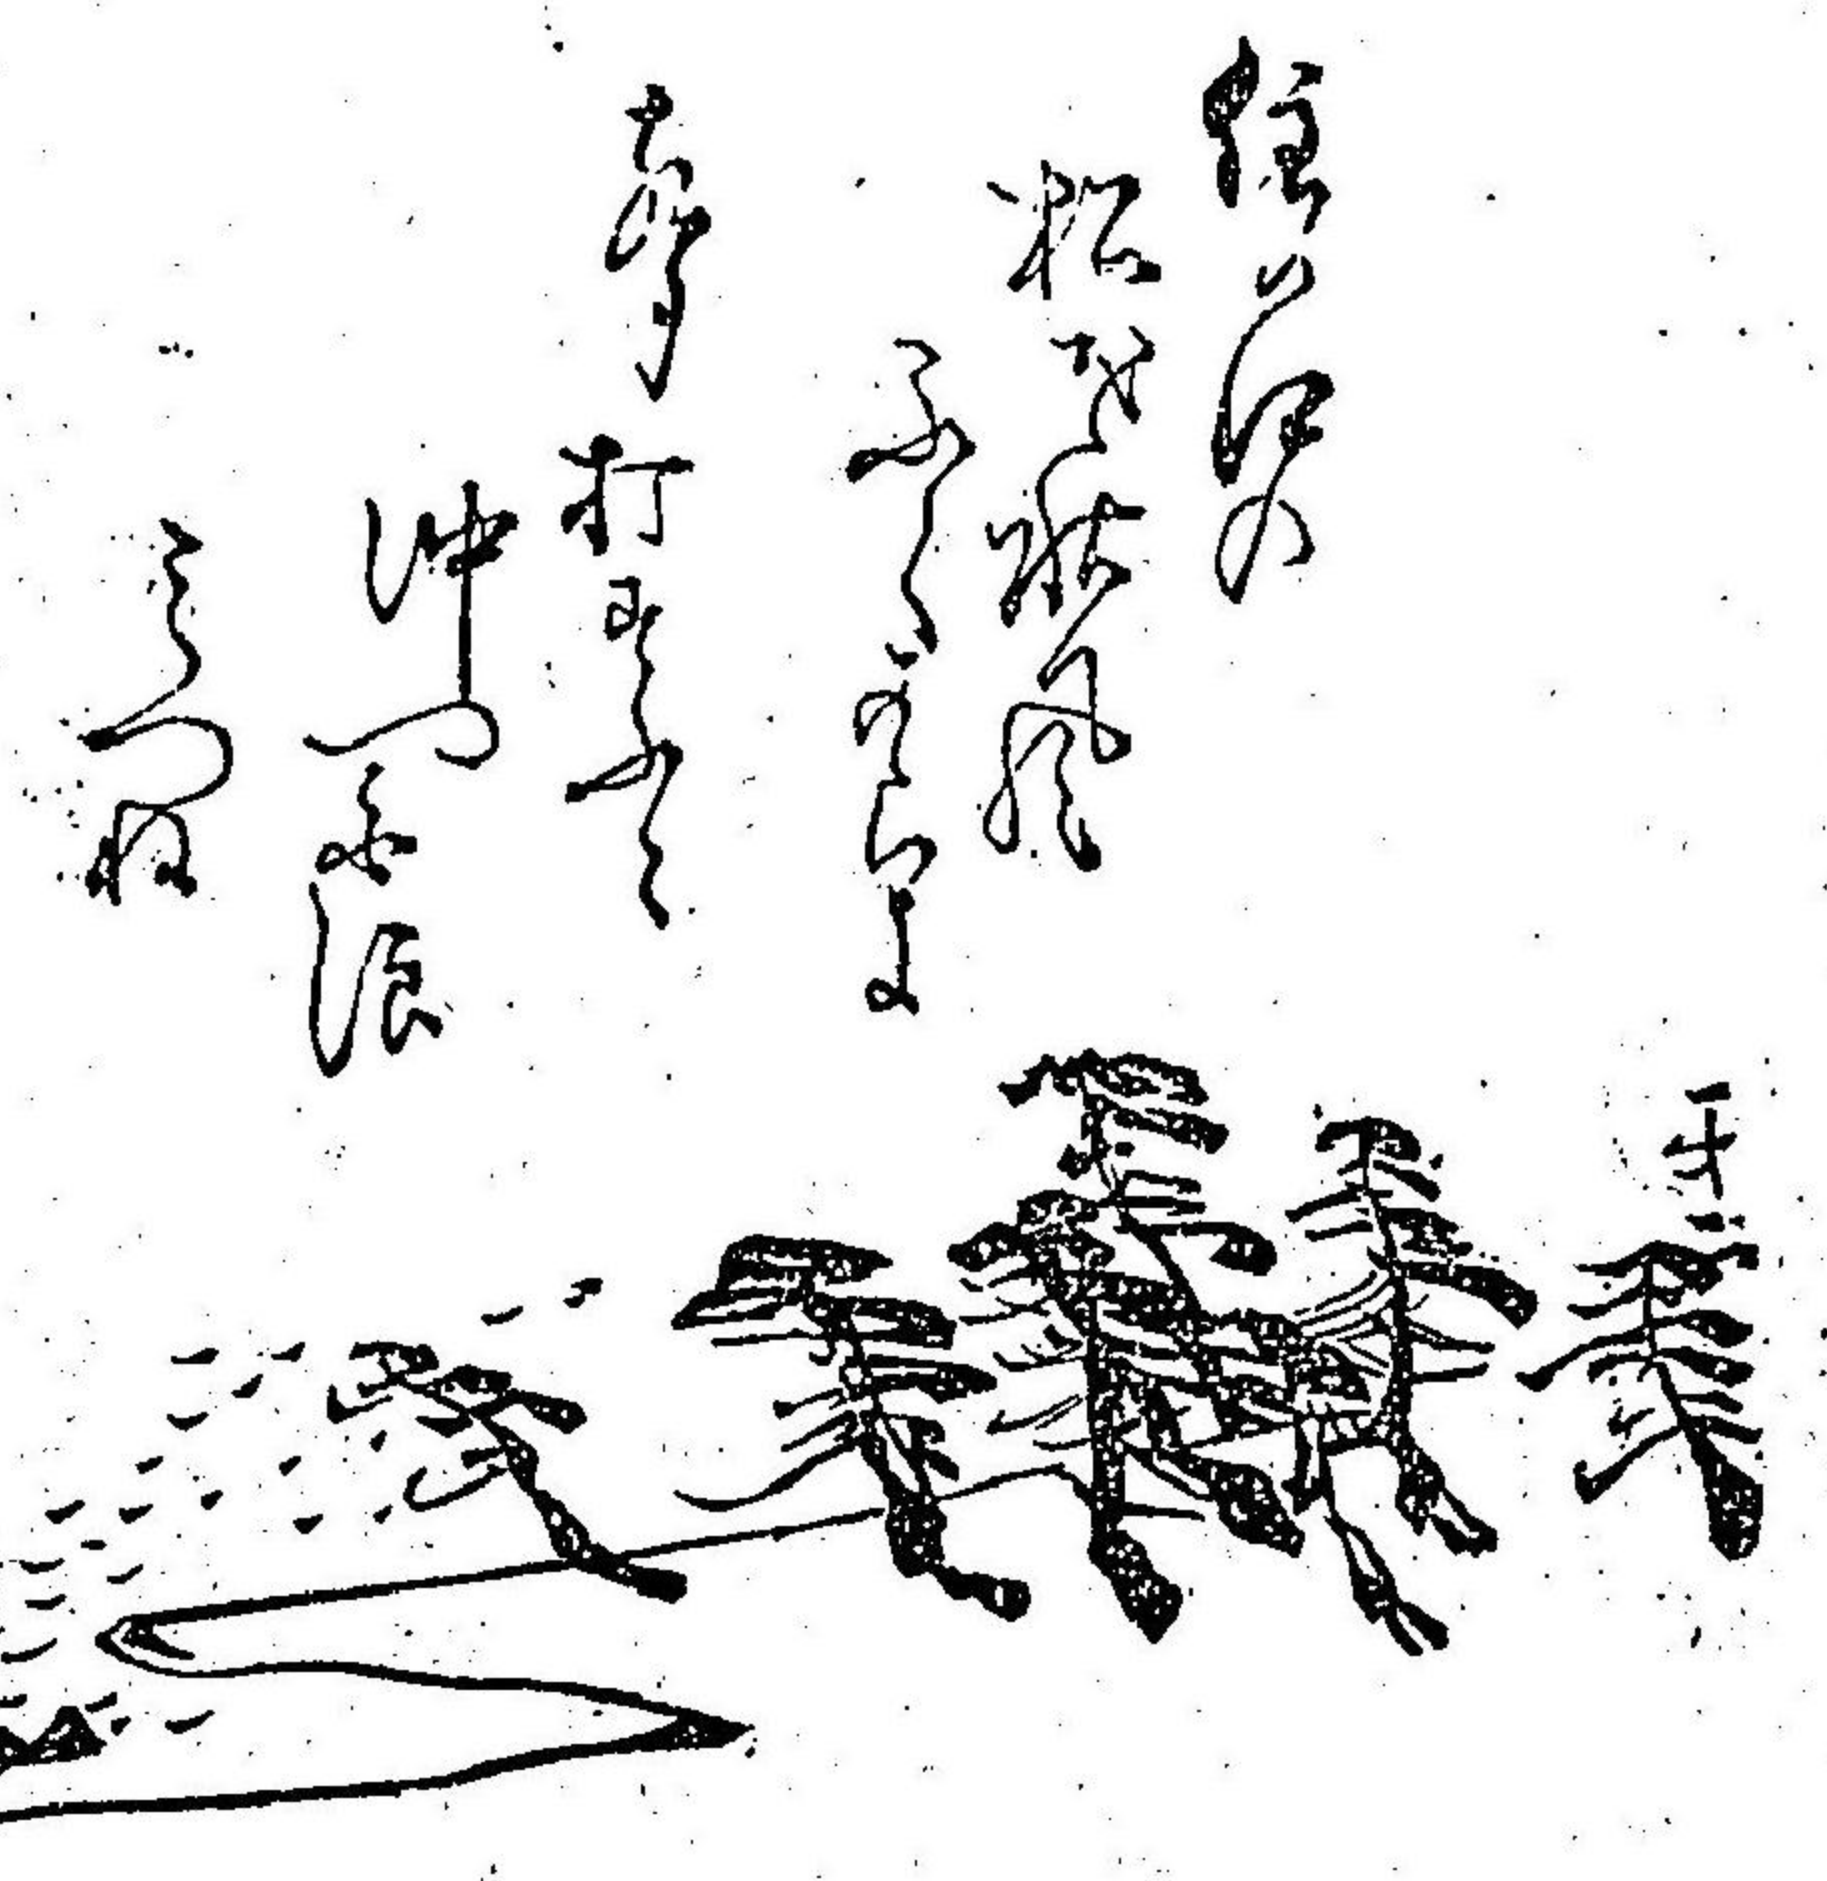 住の江の
松を秋風
ふくからに
声打そふる
沖つ白浪
みつね